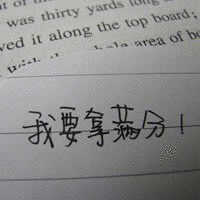 was thirty yards long
ved it along the top board;
area of bo
我要拿满分！